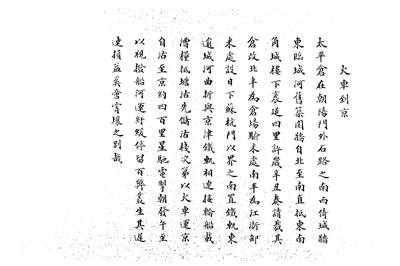 火車到京
太平倉在朝陽門外石路之南西倚城牆
東臨城河舊築圍牆自北至南直抵東南
角城樓下袤延四里許歲辛丑奏請裁其
倉改北半為倉場驗米處南半為江浙卸
米處設日下蘇杭門以界之南置鐵軌東
遶城河曲折與京津鐵軌相連接輪船載
漕糧抵塘沽先儲沽棧次第以火車運京
自沽至京約四百里星馳電掣朝發午至
以視撥船河運紆緩停留百弊叢生其遲
速損益奚啻霄壤之別哉